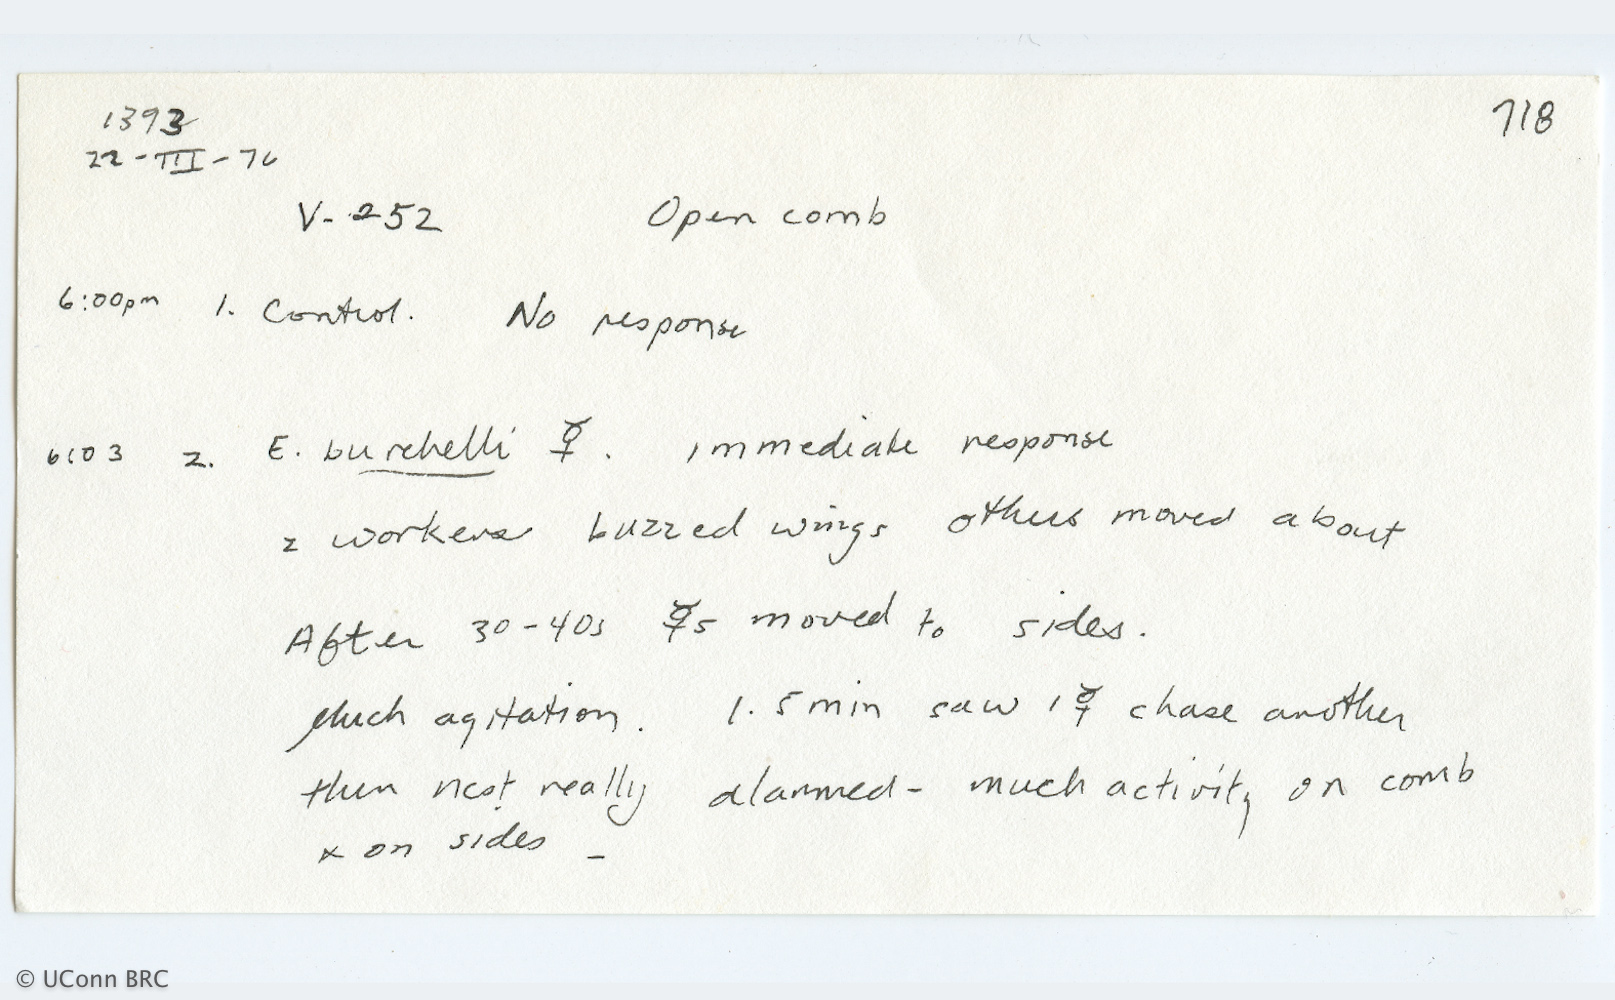 1393
718
22-III-76
V-252 Open comb
6:00pm 1. Control. No response
6:03 2. E. burchelli ☿. immediate response
2 workers buzzed wings others moved about
After 30-40s ☿s moved to sides.
Much agitation. 1.5 min saw 1 ☿ chase another
then nest really alarmed - much activity on comb
& on sides -
© UConn BRC